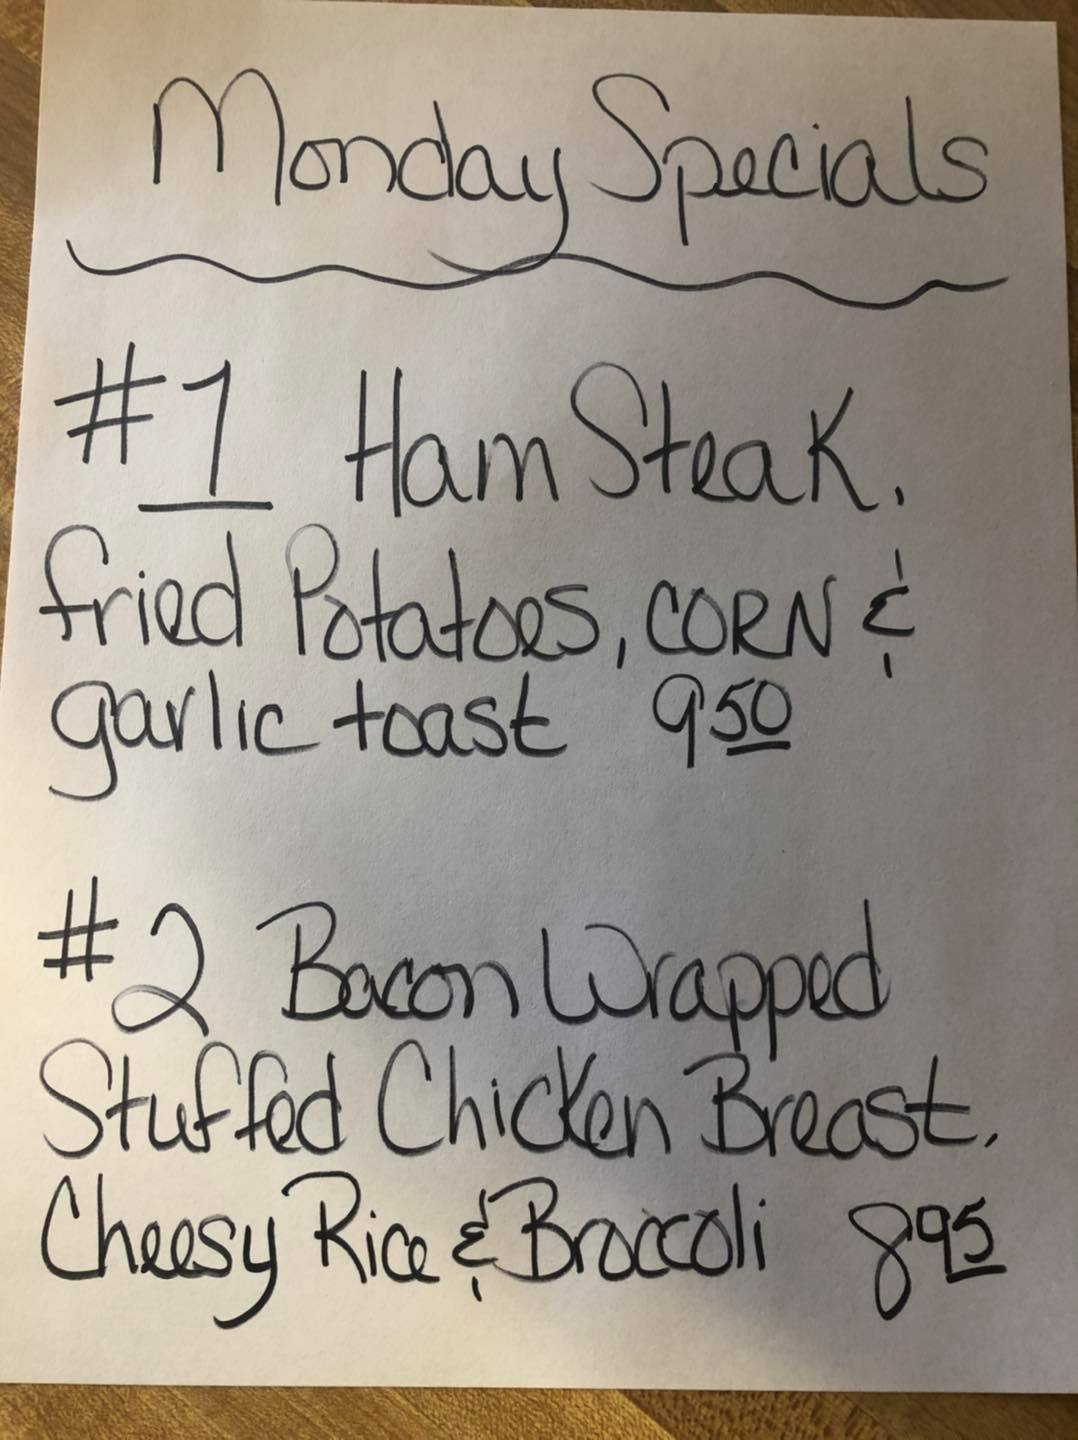 Monday Specials
#1 Ham Steak,
fried Potatoes, CORN &
garlic toast 9 50
#2 Bacon Wrapped
Stuffed Chicken Breast,
Cheesy Rice & Broccoli 8 95